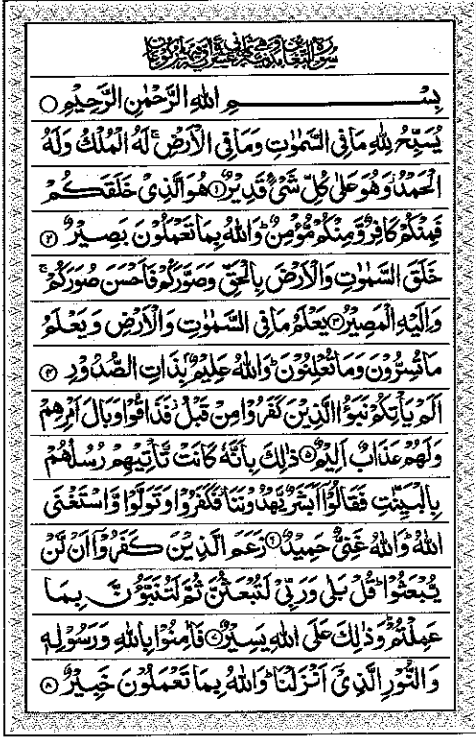 سُوْرَةُ التَّغَابُنِ مَدَنِيَّةٌ وَّهِيَ ثَمَانِيَ عَشَرَةَ اٰيَةً
بِسْمِ اللهِ الرَّحْمٰنِ الرَّحِيْمِ ۝
يُسَبِّحُ لِلّٰهِ مَا فِى السَّمٰوٰتِ وَمَا فِى الْاَرْضِ ۚ لَهُ الْمُلْكُ وَلَهُ
الْحَمْدُ ۫ وَهُوَ عَلٰى كُلِّ شَىْءٍ قَدِيْرٌ ۝۱ هُوَ الَّذِىْ خَلَقَكُمْ
فَمِنْكُمْ كَافِرٌ وَّمِنْكُمْ مُّؤْمِنٌ ؕ وَاللهُ بِمَا تَعْمَلُوْنَ بَصِيْرٌ ۝۲
خَلَقَ السَّمٰوٰتِ وَالْاَرْضَ بِالْحَقِّ وَصَوَّرَكُمْ فَاَحْسَنَ صُوَرَكُمْ ۚ
وَاِلَيْهِ الْمَصِيْرُ ۝۳ يَعْلَمُ مَا فِى السَّمٰوٰتِ وَالْاَرْضِ وَيَعْلَمُ
مَا تُسِرُّوْنَ وَمَا تُعْلِنُوْنَ ؕ وَاللهُ عَلِيْمٌۢ بِذَاتِ الصُّدُوْرِ ۝۴
اَلَمْ يَاْتِكُمْ نَبَؤُا الَّذِيْنَ كَفَرُوْا مِنْ قَبْلُ ؗ فَذَاقُوْا وَبَالَ اَمْرِهِمْ
وَلَهُمْ عَذَابٌ اَلِيْمٌ ۝۵ ذٰلِكَ بِاَنَّهٗ كَانَتْ تَّاْتِيْهِمْ رُسُلُهُمْ
بِالْبَيِّنٰتِ فَقَالُوْۤا اَبَشَرٌ يَّهْدُوْنَنَا ؗ فَكَفَرُوْا وَتَوَلَّوْا وَّاسْتَغْنَى
اللهُ ؕ وَاللهُ غَنِىٌّ حَمِيْدٌ ۝۶ زَعَمَ الَّذِيْنَ كَفَرُوْۤا اَنْ لَّنْ
يُّبْعَثُوْا ؕ قُلْ بَلٰى وَرَبِّىْ لَتُبْعَثُنَّ ثُمَّ لَتُنَبَّؤُنَّ بِمَا
عَمِلْتُمْ ؕ وَذٰلِكَ عَلَى اللهِ يَسِيْرٌ ۝۷ فَاٰمِنُوْا بِاللهِ وَرَسُوْلِهٖ
وَالنُّوْرِ الَّذِىْۤ اَنْزَلْنَا ؕ وَاللهُ بِمَا تَعْمَلُوْنَ خَبِيْرٌ ۝۸